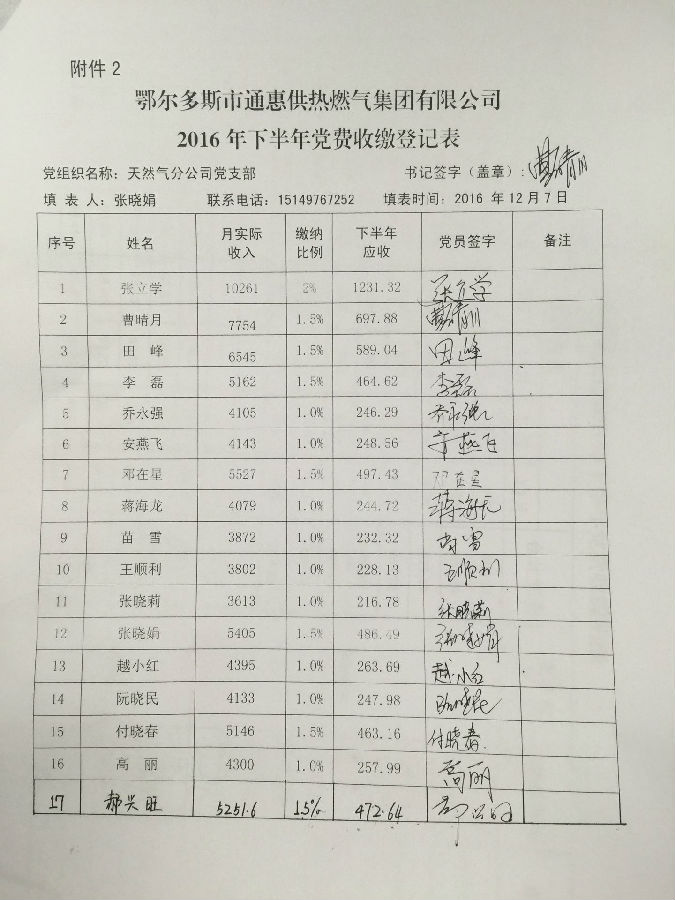 附件2
鄂尔多斯市通惠供热燃气集团有限公司
2016年下半年党费收缴登记表
党组织名称：天然气分公司党支部 书记签字（盖章）：
填 表 人：张晓娟 联系电话：15149767252 填表时间：2016 年12月7日
序号 姓名 月实际收入 缴纳比例 下半年应收 党员签字 备注
1 张立学 10261 2% 1231.32 张立学
2 曹晴月 7754 1.5% 697.88
3 田 峰 6545 1.5% 589.04 田峰
4 李 磊 5162 1.5% 464.62 李磊
5 乔永强 4105 1.0% 246.29 乔永强
6 安燕飞 4143 1.0% 248.56 安燕飞
7 邓在星 5527 1.5% 497.43 邓在星
8 蒋海龙 4079 1.0% 244.72 蒋海龙
9 苗 雪 3872 1.0% 232.32 苗雪
10 王顺利 3802 1.0% 228.13 王顺利
11 张晓莉 3613 1.0% 216.78 张晓莉
12 张晓娟 5405 1.5% 486.49 张晓娟
13 越小红 4395 1.0% 263.69 越小红
14 阮晓民 4133 1.0% 247.98 阮晓民
15 付晓春 5146 1.5% 463.16 付晓春
16 高 丽 4300 1.0% 257.99 高丽
17 郝兴旺 5251.6 1.5% 472.64